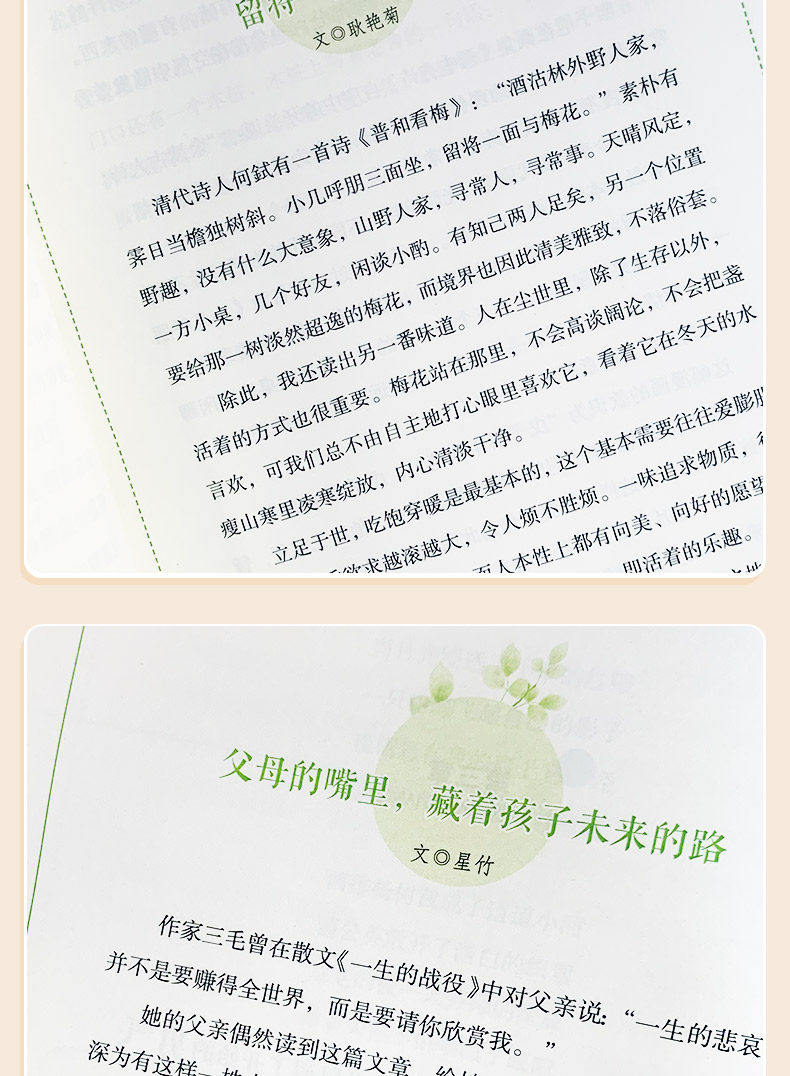 留将
文◎耿艳菊
清代诗人何鉽有一首诗《普和看梅》：“酒沽林外野人家，
霁日当檐独树斜。小几呼朋三面坐，留将一面与梅花。”素朴有
野趣，没有什么大意象，山野人家，寻常人，寻常事。天晴风定，
一方小桌，几个好友，闲谈小酌。有知己两人足矣，另一个位置
要给那一树淡然超逸的梅花，而境界也因此清美雅致，不落俗套。
除此，我还读出另一番味道。人在尘世里，除了生存以外，
活着的方式也很重要。梅花站在那里，不会高谈阔论，不会把盏
言欢，可我们总不由自主地打心眼里喜欢它，看着它在冬天的水
瘦山寒里凌寒绽放，内心清淡干净。
立足于世，吃饱穿暖是最基本的，这个基本需要往往爱膨胀
欲求越滚越大，令人烦不胜烦。一味追求物质，
而人本性上都有向美、向好的愿望
即活着的乐趣。
父母的嘴里，藏着孩子未来的路
文◎星竹
作家三毛曾在散文《一生的战役》中对父亲说：“一生的悲哀
并不是要赚得全世界，而是要请你欣赏我。”
她的父亲偶然读到这篇文章，给
深为有这样一